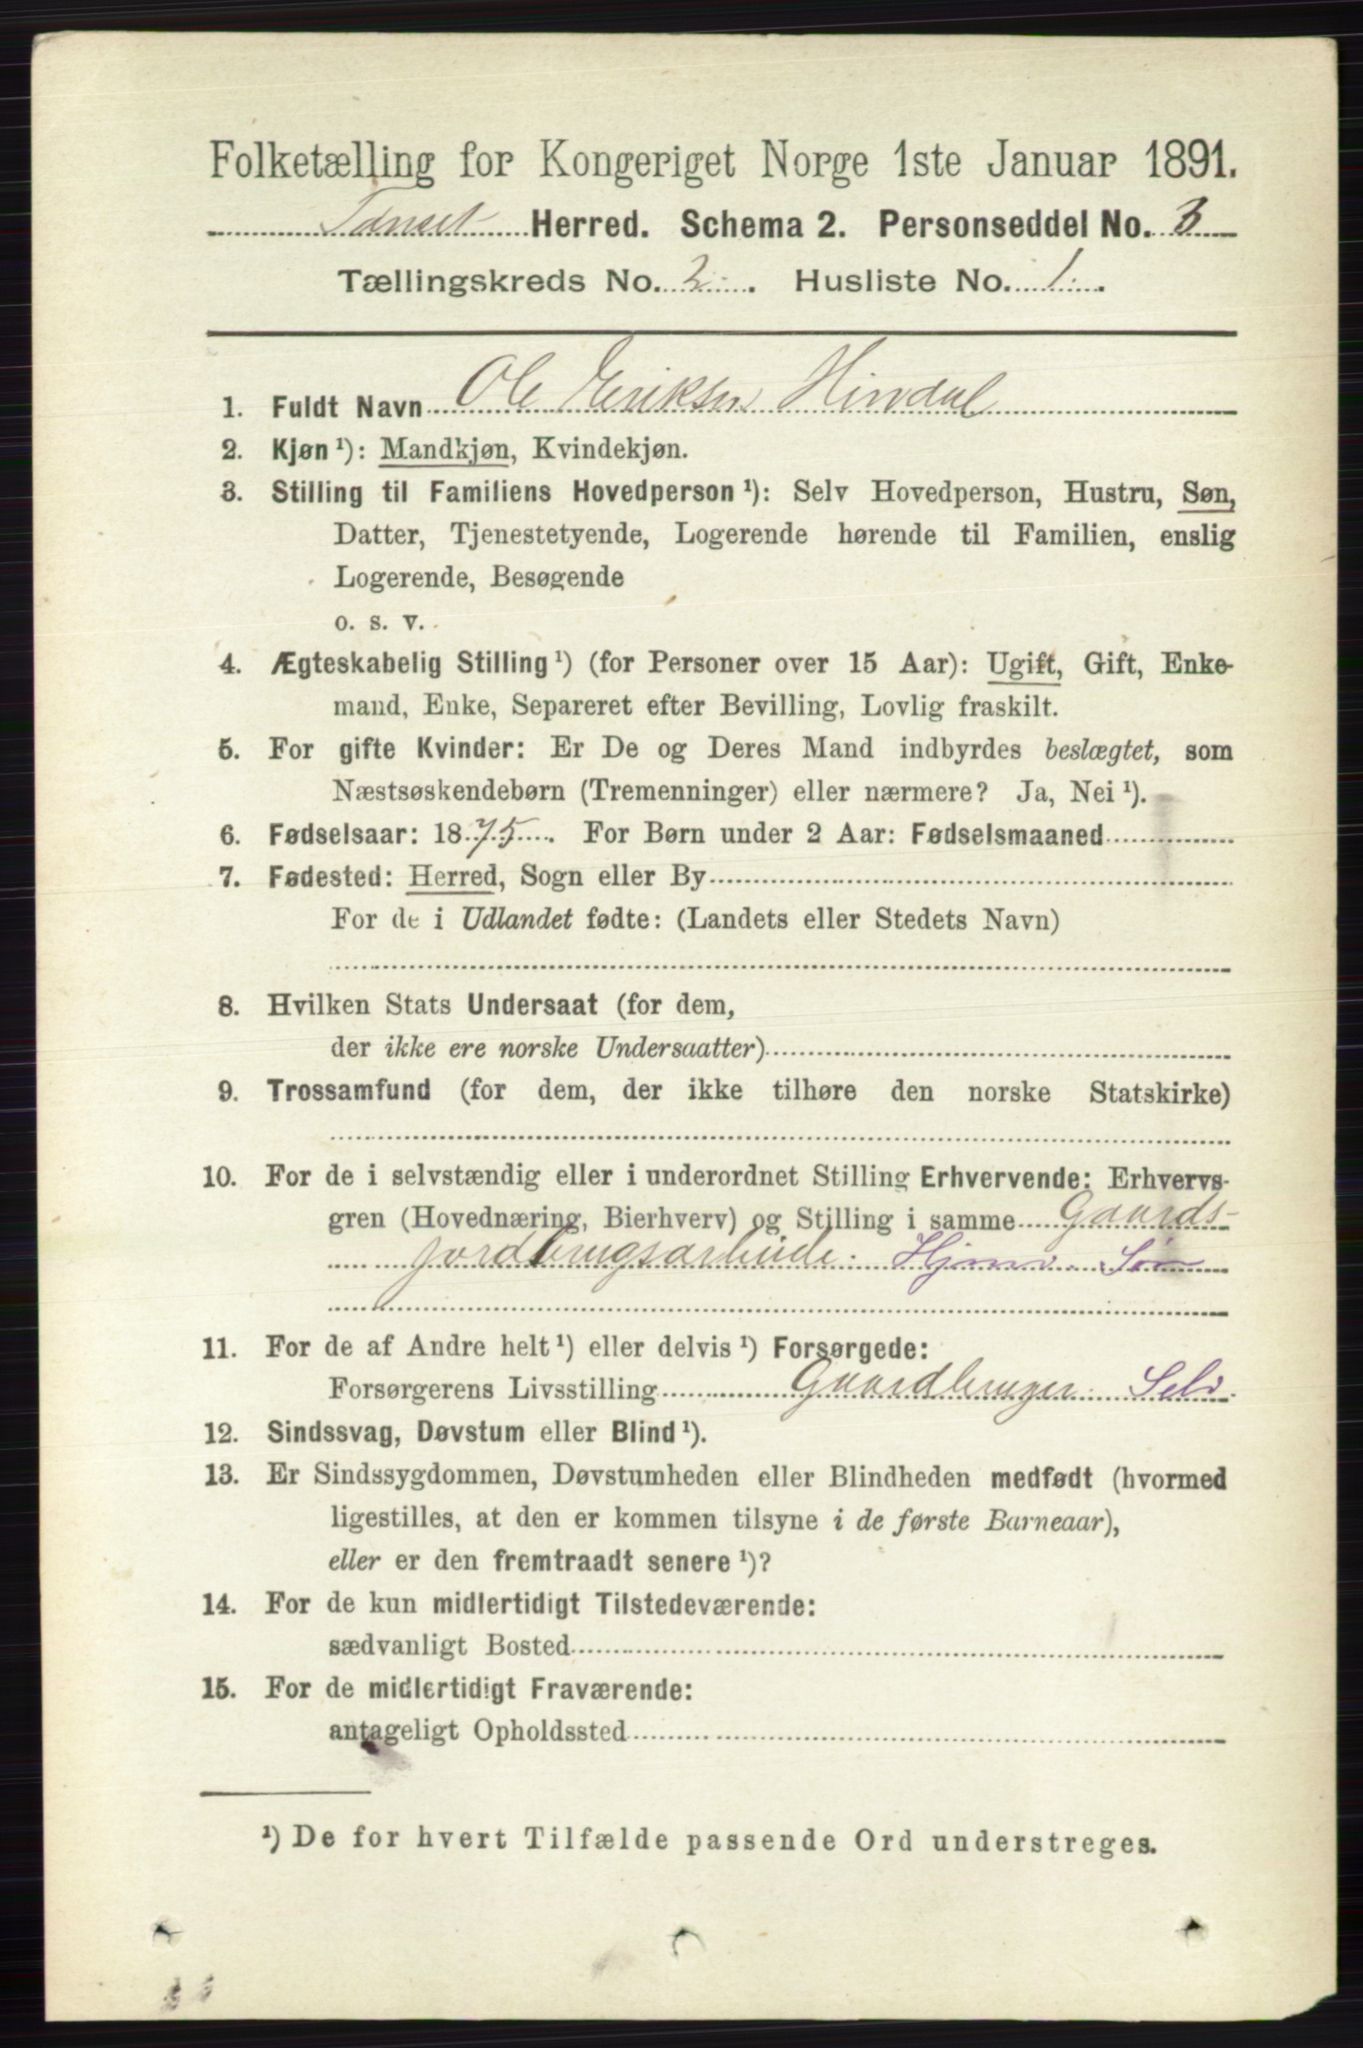 Folketælling for Kongeriget Norge 1ste Januar 1891.
Tønset Herred. Schema 2. Personseddel No. 3
Tællingskreds No. 2. Husliste No. 1.
1. Fuldt Navn Ole Eriksen Hindal
2. Kjøn¹): Mandkjøn, Kvindekjøn.
3. Stilling til Familiens Hovedperson¹): Selv Hovedperson, Hustru, Søn,
Datter, Tjenestetyende, Logerende hørende til Familien, enslig
Logerende, Besøgende
o. s. v.
4. Ægteskabelig Stilling¹) (for Personer over 15 Aar): Ugift, Gift, Enke-
mand, Enke, Separeret efter Bevilling, Lovlig fraskilt.
5. For gifte Kvinder: Er De og Deres Mand indbyrdes beslægtet, som
Næstsøskendebørn (Tremenninger) eller nærmere? Ja, Nei¹).
6. Fødselsaar: 1875. For Børn under 2 Aar: Fødselsmaaned
7. Fødested: Herred, Sogn eller By
For de i Udlandet fødte: (Landets eller Stedets Navn)
8. Hvilken Stats Undersaat (for dem,
der ikke ere norske Undersaatter)
9. Trossamfund (for dem, der ikke tilhøre den norske Statskirke)
10. For de i selvstændig eller i underordnet Stilling Erhvervende: Erhvervs-
gren (Hovednæring, Bierhverv) og Stilling i samme Gaards-
jordbrugsarbeide. Hjmv. Søn
11. For de af Andre helt¹) eller delvis¹) Forsørgede:
Forsørgerens Livsstilling Gaardbruger. Selv.
12. Sindssvag, Døvstum eller Blind¹).
13. Er Sindssygdommen, Døvstumheden eller Blindheden medfødt (hvormed
ligestilles, at den er kommen tilsyne i de første Barneaar),
eller er den fremtraadt senere¹)?
14. For de kun midlertidigt Tilstedeværende:
sædvanligt Bosted
15. For de midlertidigt Fraværende:
antageligt Opholdssted
¹) De for hvert Tilfælde passende Ord understreges.